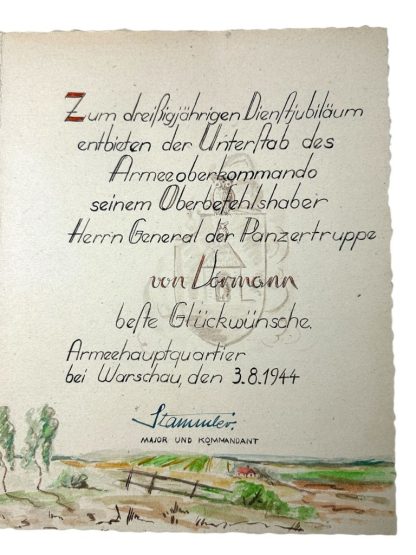 Zum dreißigjährigen Dienstjubiläum
entbieten der Unterstab des
Armeeoberkommando
seinem Oberbefehlshaber
Herrn General der Panzertruppe
von Vormann
beste Glückwünsche.
Armeehauptquartier
bei Warschau, den 3.8.1944
Stammler.
MAJOR UND KOMMANDANT